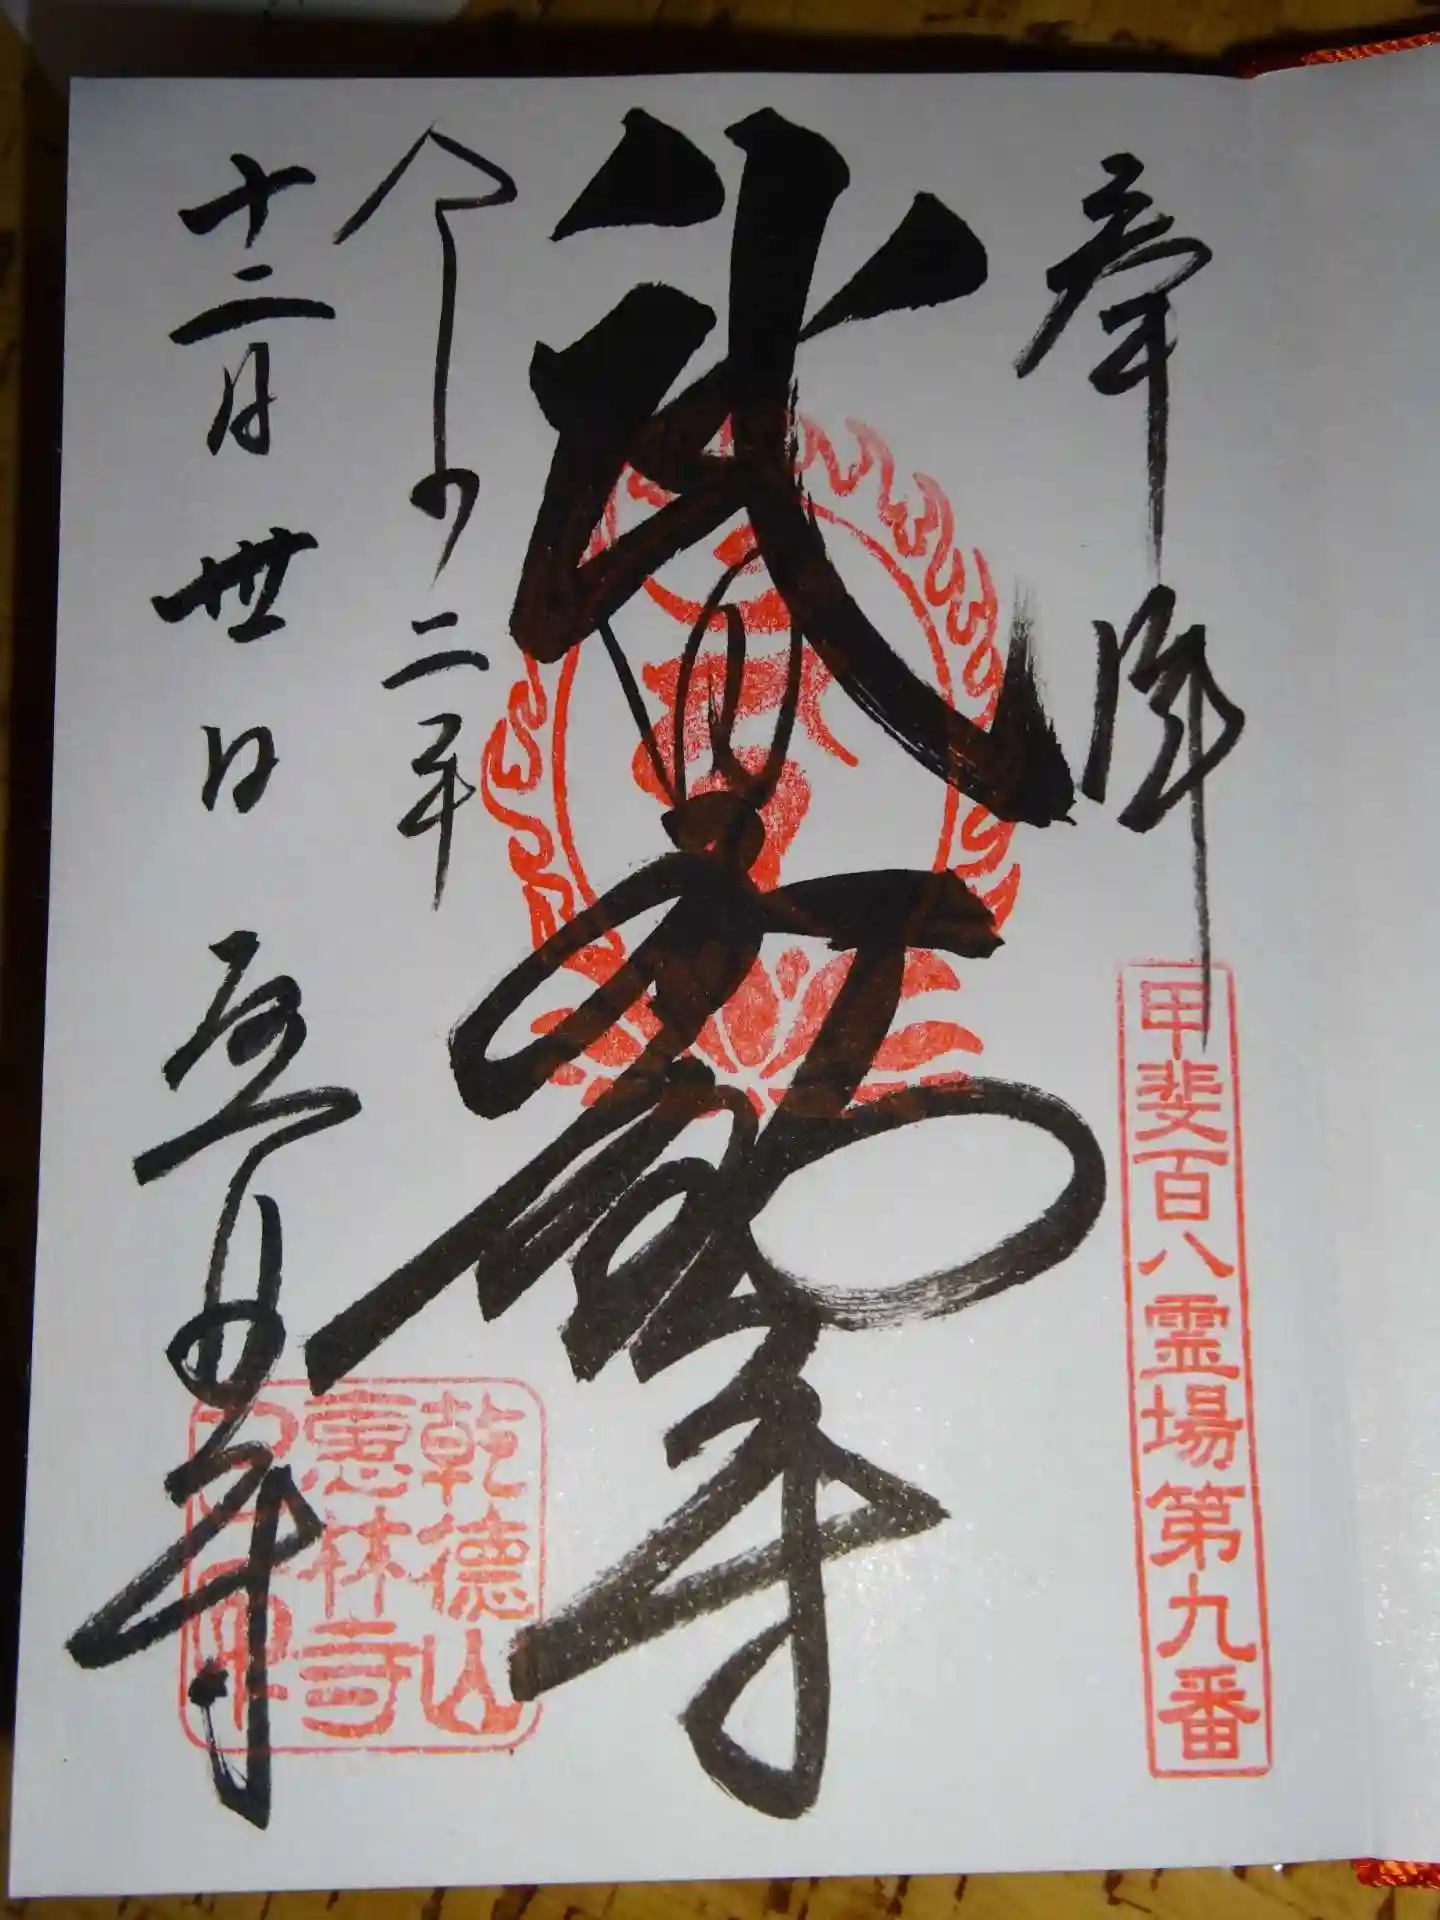 奉拝
甲斐百八霊場第九番
武田不動尊
令和二年
十二月丗日
乾徳山
惠林寺